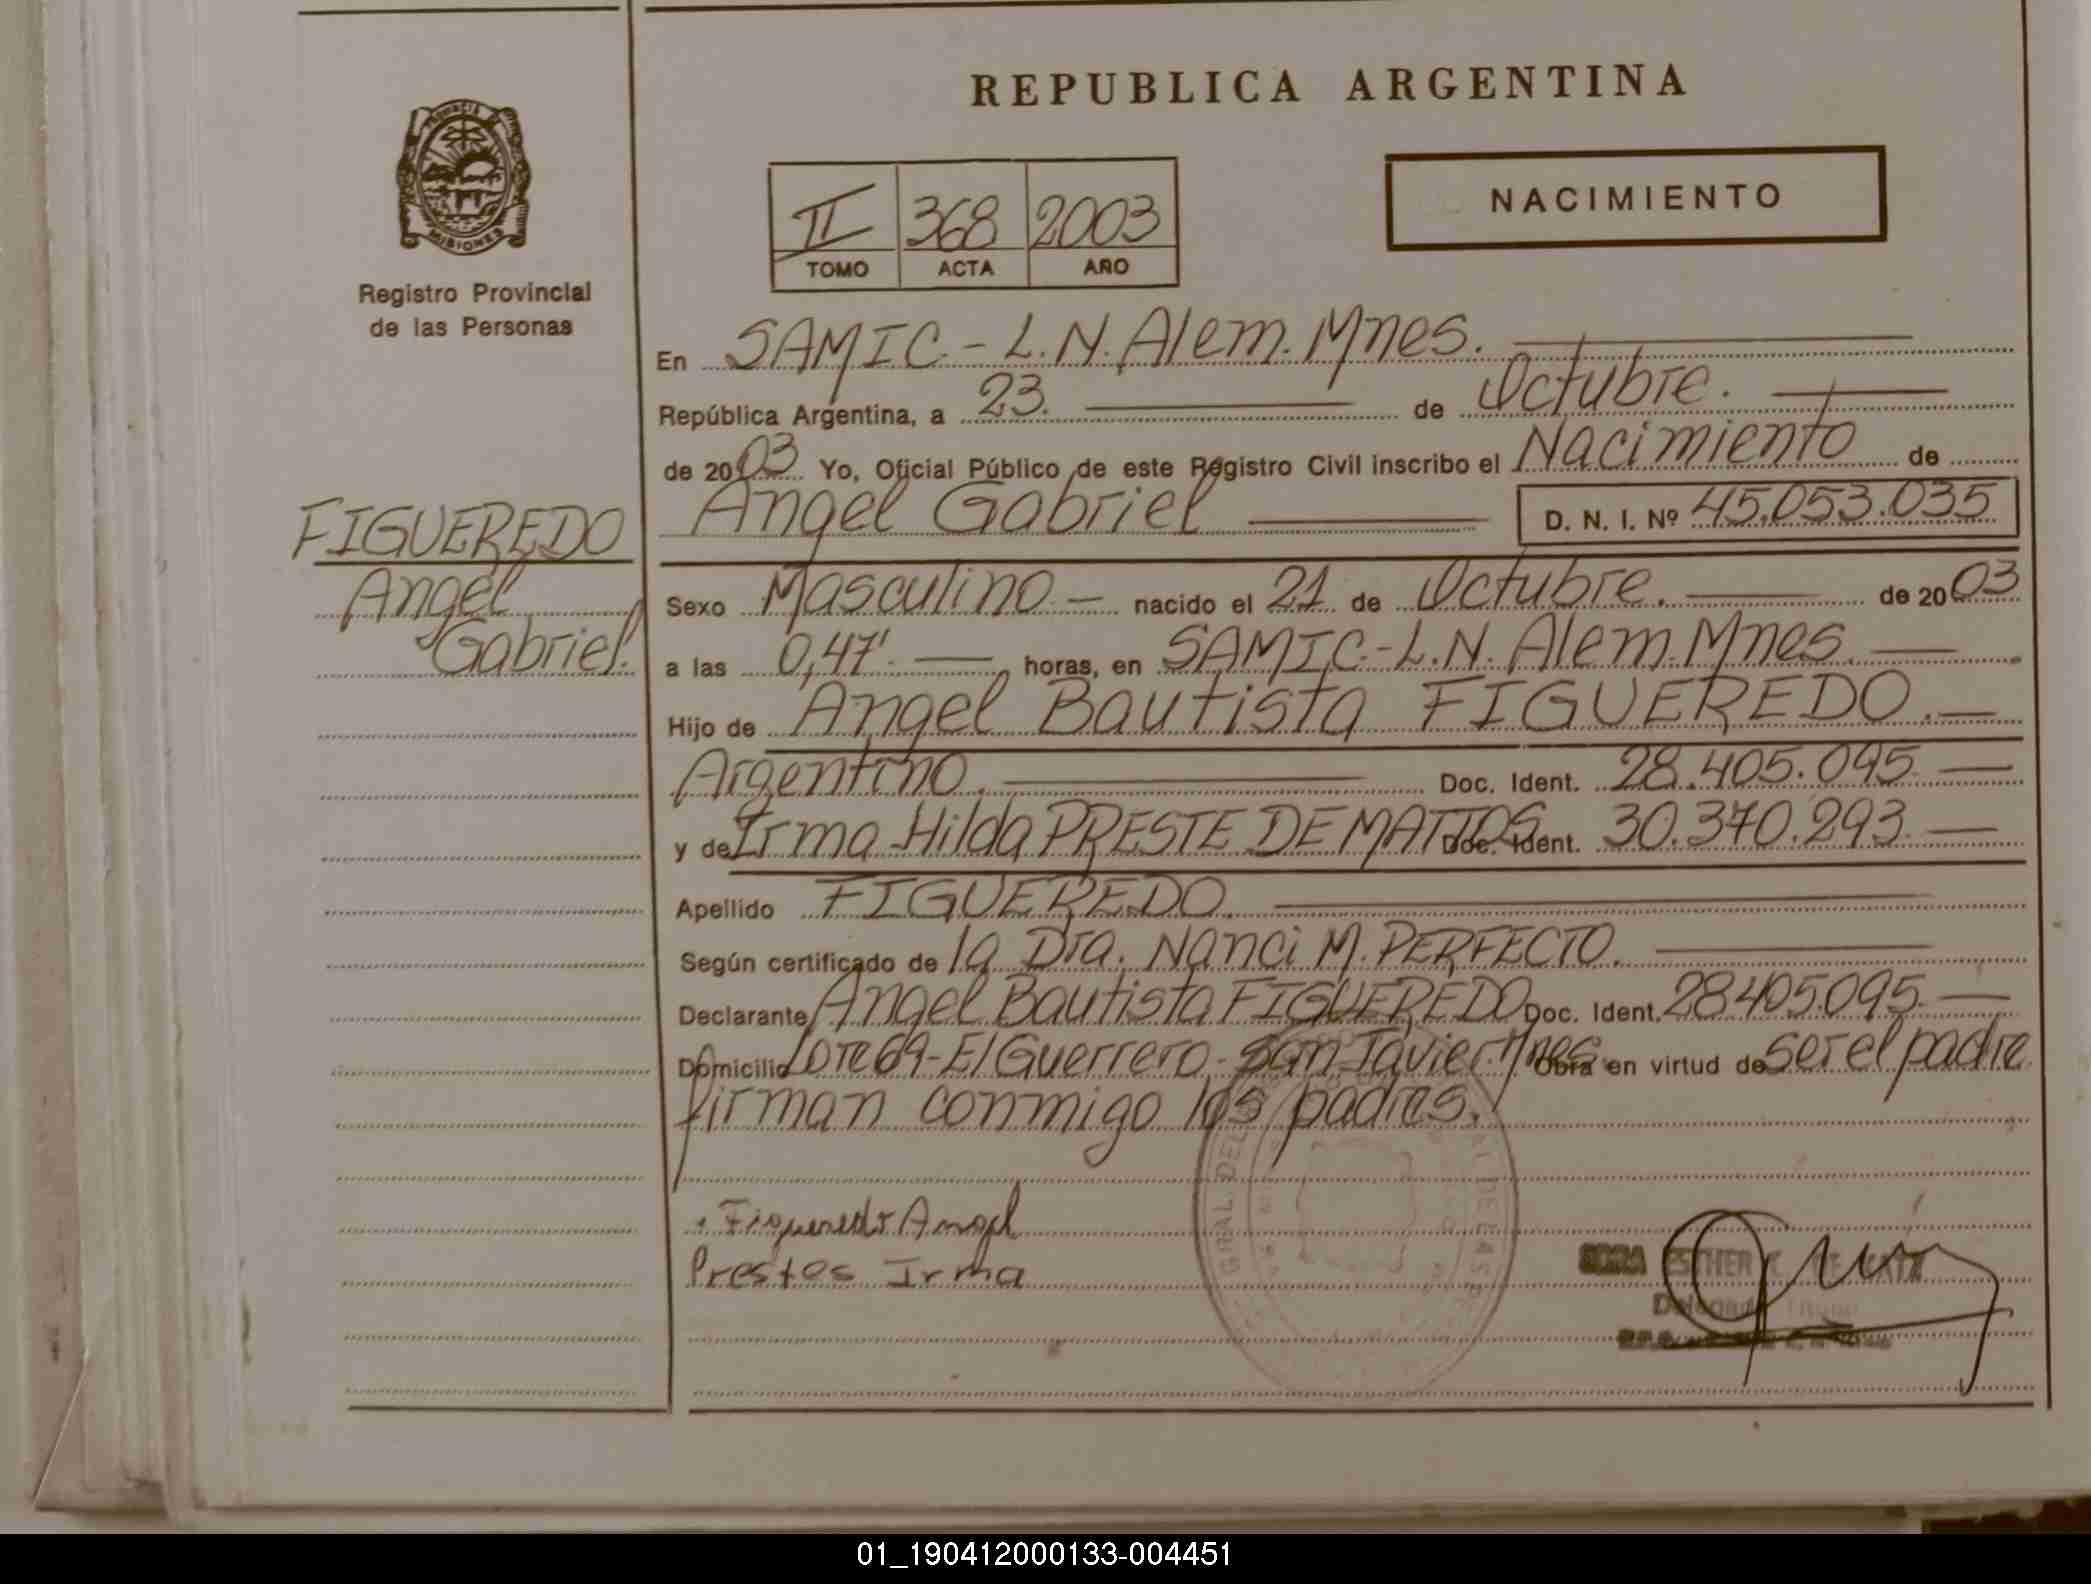 REPUBLICA ARGENTINA
PROVINCIA
MISIONES
Registro Provincial
de las Personas
II 368 2003
TOMO ACTA AÑO
NACIMIENTO
En SAMIC.- L.N. Alem. Mnes.
República Argentina, a 23. de Octubre.
de 2003 Yo, Oficial Público de este Registro Civil inscribo el Nacimiento de
Angel Gabriel D. N. I. Nº 45.053.035
FIGUEREDO
Angel
Gabriel.
Sexo Masculino nacido el 21 de Octubre. de 2003
a las 0,47'. horas, en SAMIC.-L.N. Alem. Mnes.
Hijo de Angel Bautista FIGUEREDO.
Argentino. Doc. Ident. 28.405.095
y de Irma Hilda PRESTE DE MATTOS Doc. Ident. 30.370.293.
Apellido FIGUEREDO.
Según certificado de la Dra. Nanci M. PERFECTO.
Declarante Angel Bautista FIGUEREDO Doc. Ident. 28.405.095.
Domicilio Lote 69-El Guerrero- San Javier. Mnes. Obra en virtud de ser el padre
firman conmigo los padres.
Figueredo Angel
Prestes Irma
ESTHER
01_190412000133-004451